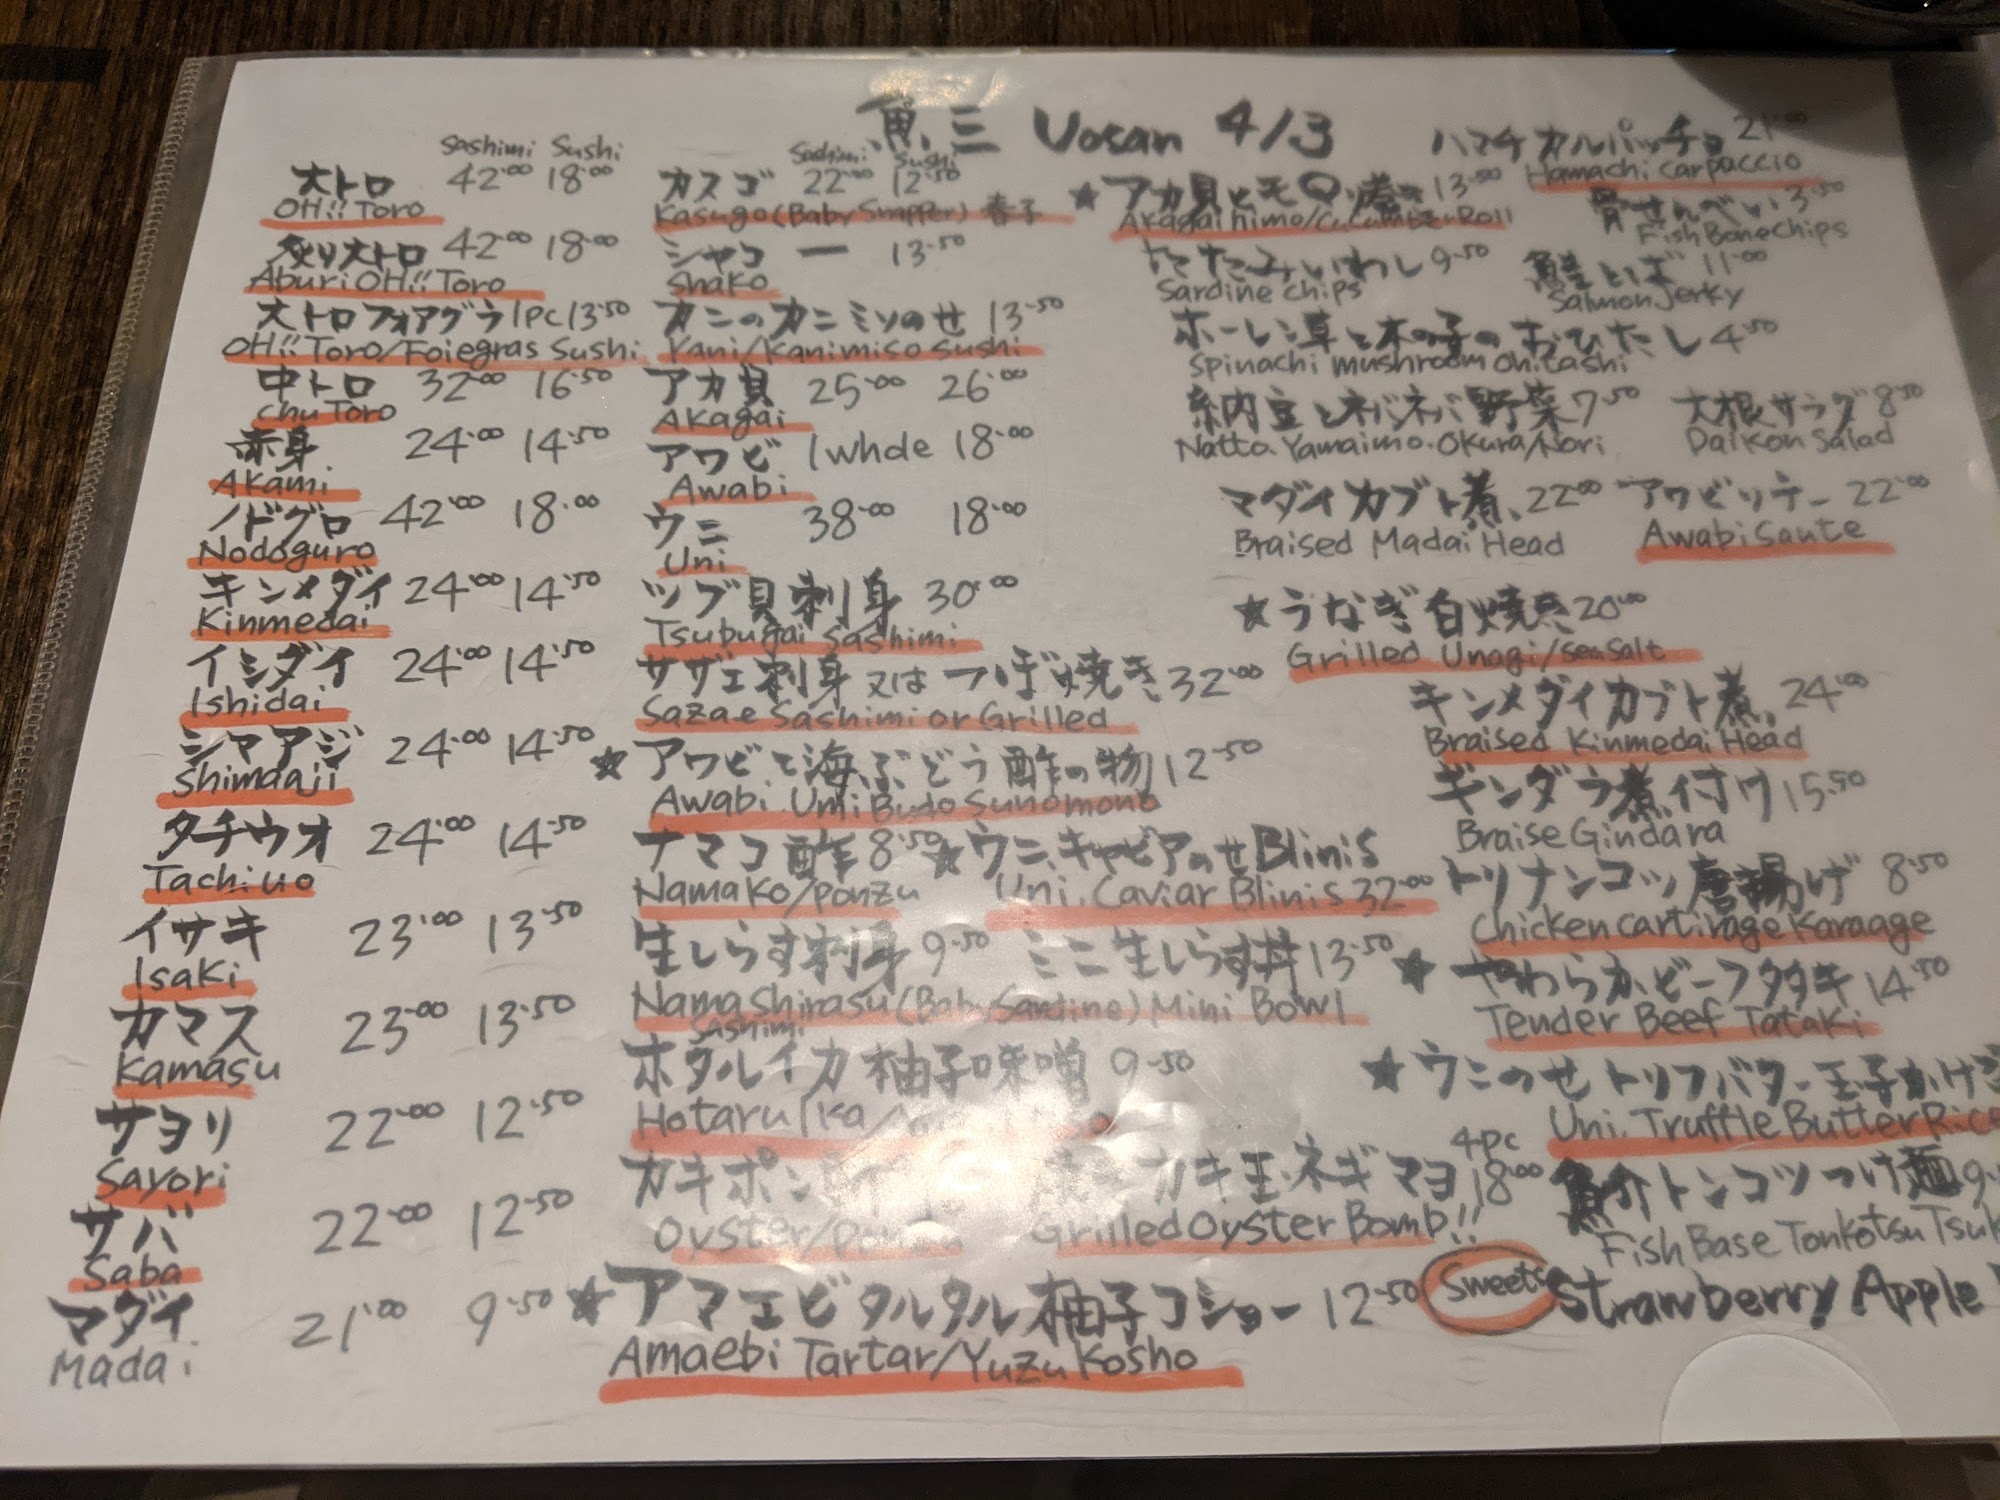 魚三 Uosan 4/3
Sashimi Sushi
大トロ 42.00 18.00
OH!! Toro
炙り大トロ 42.00 18.00
Aburi OH!! Toro
大トロフォアグラ 1pc 13.50
OH!! Toro/Foiegras Sushi
中トロ 32.00 16.50
Chu Toro
赤身 24.00 14.50
Akami
ノドグロ 42.00 18.00
Nodoguro
キンメダイ 24.00 14.50
Kinmedai
イシダイ 24.00 14.50
Ishidai
シマアジ 24.00 14.50
Shimaaji
タチウオ 24.00 14.50
Tachiuo
イサキ 23.00 13.50
Isaki
カマス 23.00 13.50
Kamasu
サヨリ 22.00 12.50
Sayori
サバ 22.00 12.50
Saba
マダイ 21.00 9.50
Madai
Sashimi Sushi
カスゴ 22.00 12.50
Kasugo (Baby Snapper) 春子
シャコ ー 13.50
Shako
カニのカニミソのせ 13.50
Kani/Kanimiso Sushi
アカ貝 25.00 26.00
Akagai
アワビ 1 whole 18.00
Awabi
ウニ 38.00 18.00
Uni
ツブ貝刺身 30.00
Tsubugai Sashimi
サザエ刺身又はつぼ焼き 32.00
Sazae Sashimi or Grilled
★アワビと海ぶどう酢の物 12.50
Awabi Umi Budo Sunomono
ナマコ酢 8.50
Namako/ponzu
★ウニ、キャビアのせ Blinis
Uni. Caviar Blinis 32.00
生しらす刺身 9.50 ミニ生しらす丼 13.50
Nama Shirasu (Baby Sardine) Mini Bowl
Sashimi
ホタルイカ柚子味噌 9.50
Hotaru Ika/
カキポン
Oyster/Ponzu
カキ玉・ネギマヨ 4pc 18.00
Grilled Oyster Bomb!!
★アマエビタルタル柚子コショー 12.50
Amaebi Tartar/Yuzu Kosho
ハマチカルパッチョ 21.00
Hamachi Carpaccio
★アカ貝ヒモQ巻き 13.50
Akagai himo/Cucumber Roll
骨せんべい 3.50
Fish Bone chips
たたみいわし 9.50
Sardine chips
鮭とば 11.00
Salmon Jerky
ホーレン草と木の子のおひたし 4.50
Spinach mushroom ohitashi
納豆とネバネバ野菜 7.50
Natto. Yamaimo. Okura/Nori
大根サラダ 8.50
Daikon Salad
マダイカブト煮 22.00
Braised Madai Head
アワビソテー 22.00
Awabi Saute
★うなぎ白焼き 20.00
Grilled Unagi/Sea Salt
キンメダイカブト煮 24.00
Braised Kinmedai Head
ギンダラ煮付け 15.50
Braise Gindara
トリナンコツ唐揚げ 8.50
Chicken cartilage Karaage
★やわらかビーフタタキ 14.50
Tender Beef Tataki
★ウニのせトリフバター玉子かけ
Uni. Truffle Butter Rice
魚介トンコツつけ麺 9.
Fish Base Tonkotsu Tsuk
Sweets Strawberry, Apple